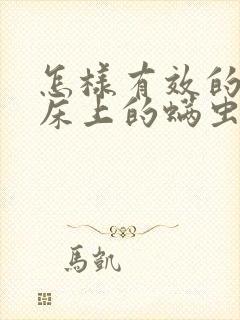 怎样有效的
床上的螨虫
馬凱